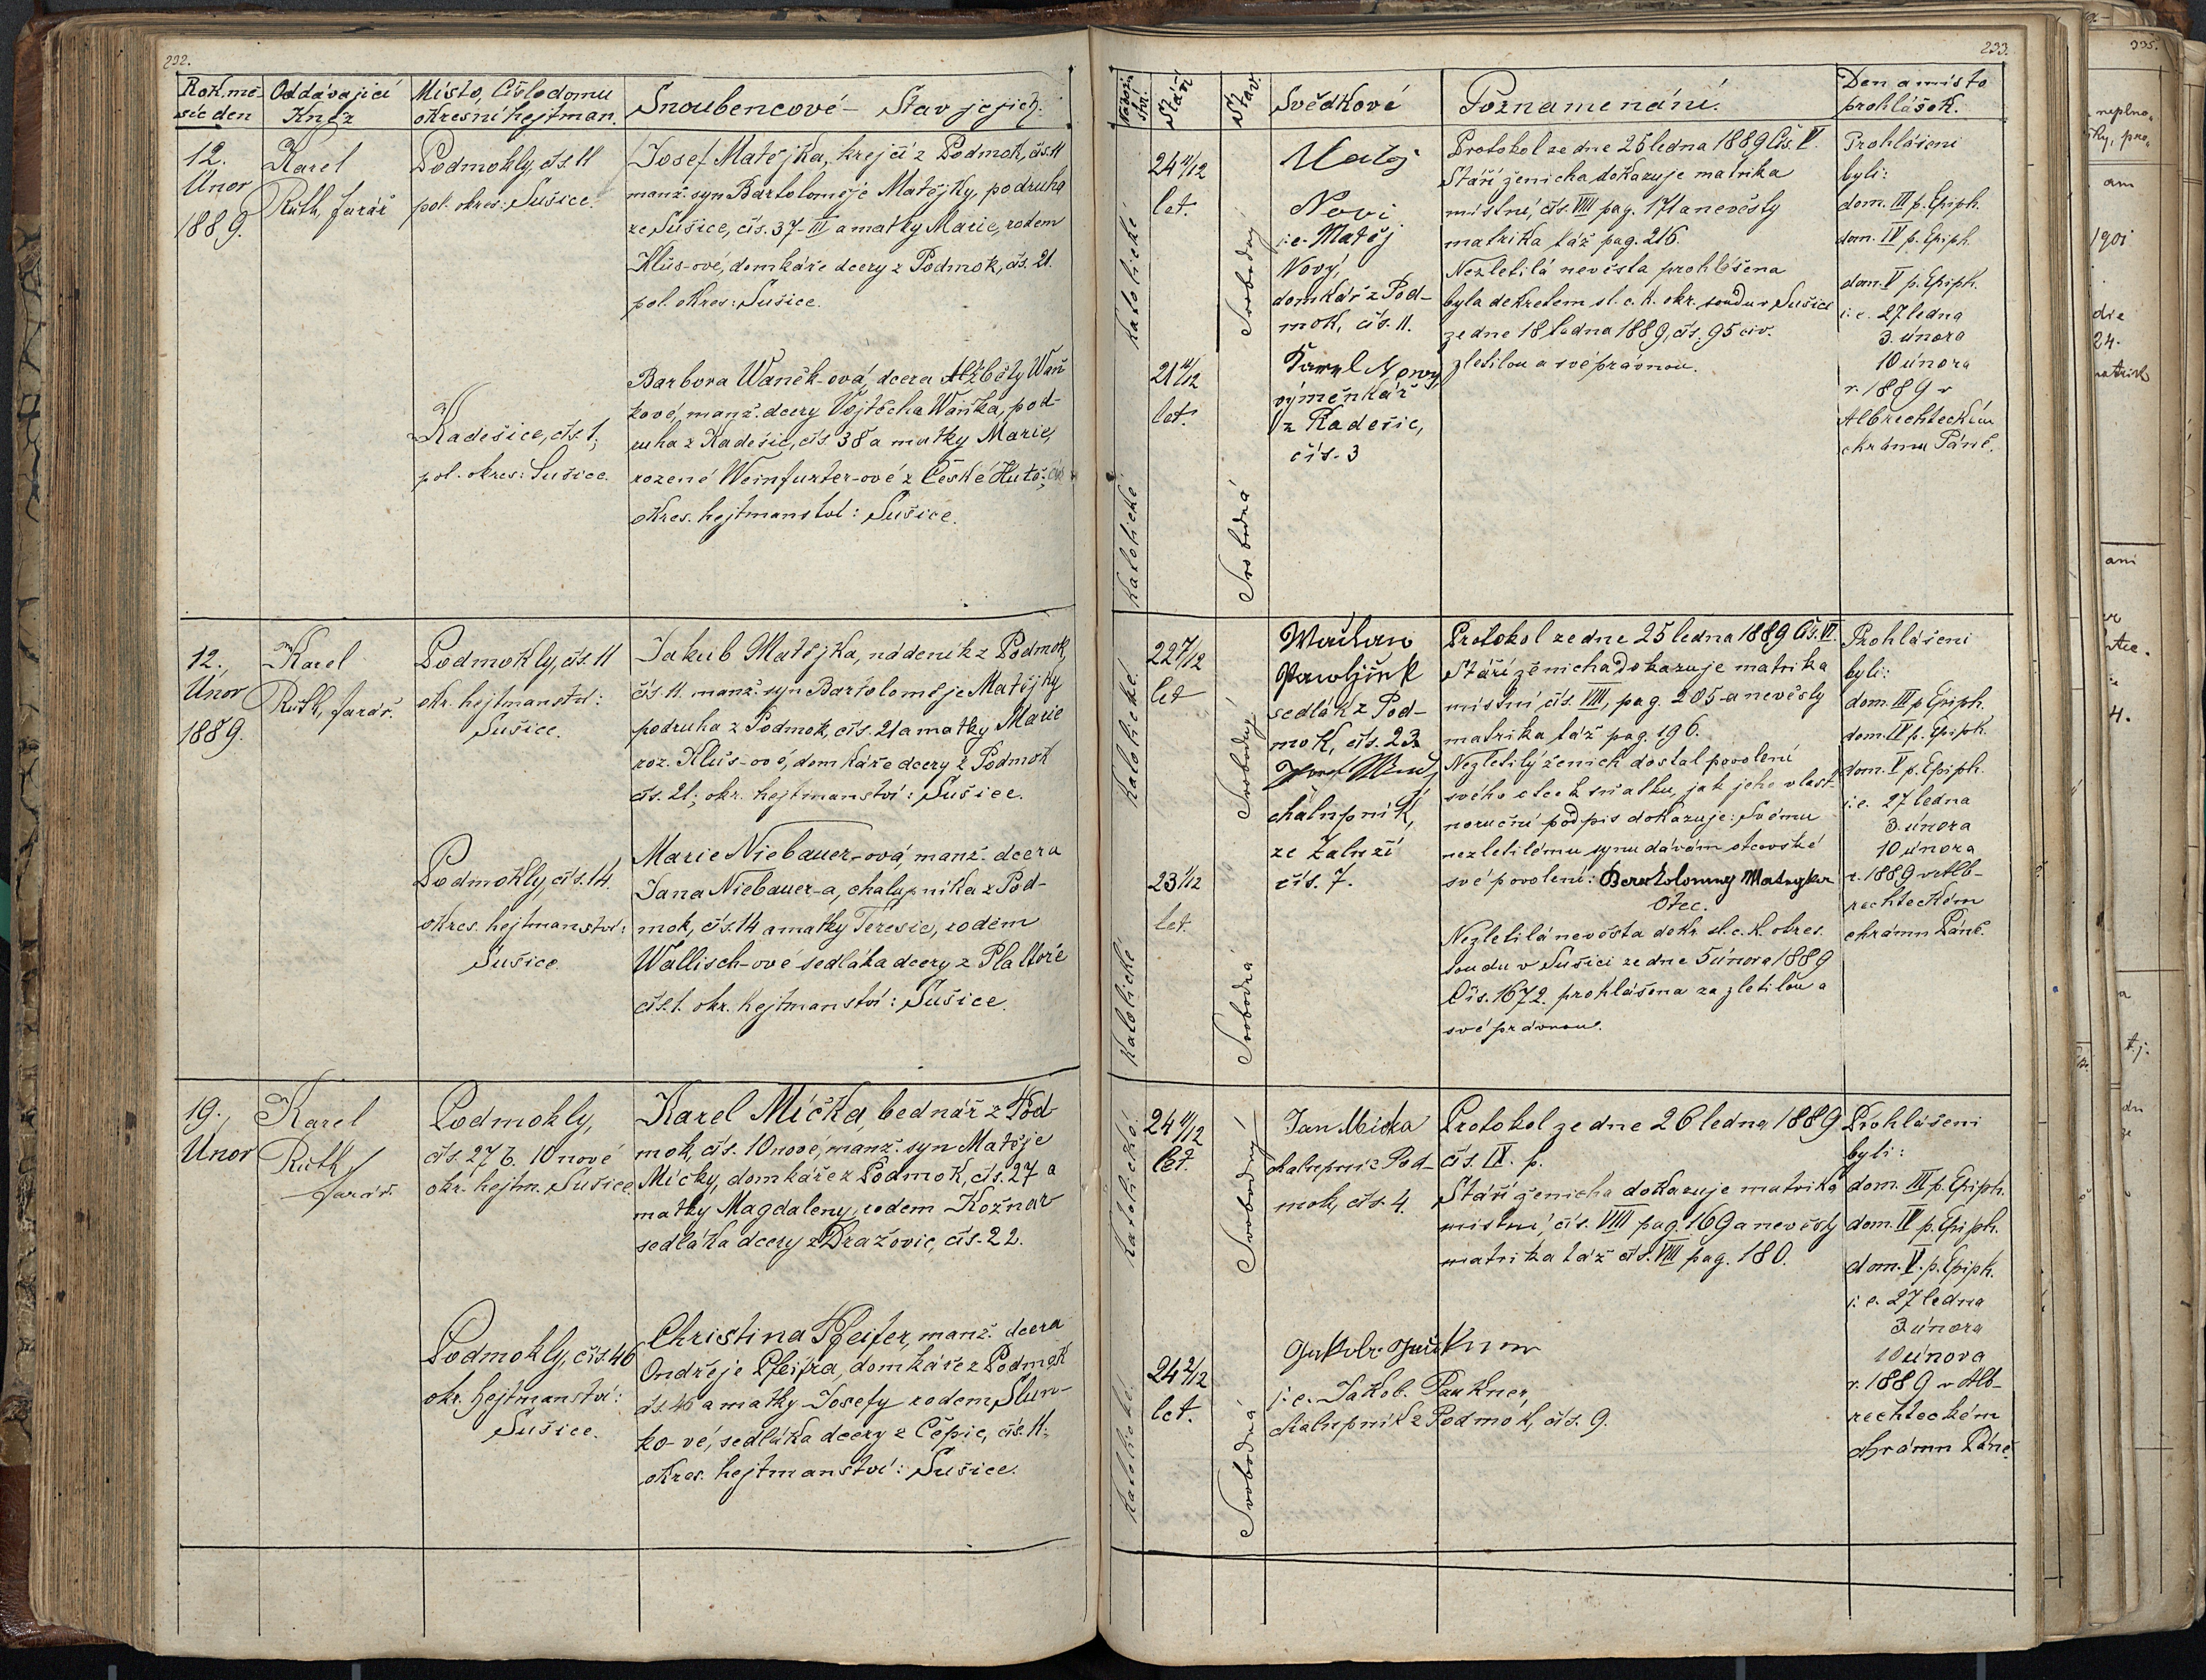 232.
Rok. mě-
síc den
Oddávající
Kněz
Místo, Číslo domu
okresní hejtman.
Snoubencové - Stav jejich.
12.
Únor
1889.
Karel
Ruth, farář
Podmokly, čís. 11
pol. okres: Sušice.
Josef Matějka, krejčí z Podmok, čís. 11
manž. syn Bartoloměje Matějky, podruha
ze Sušice, čís. 37-III a matky Marie, rodem
Klůs-ové, domkáře dcery z Podmok, čís. 21.
pol. okres: Sušice.
Kadešice, čís. 1,
pol. okres: Sušice.
Barbora Waněk-ová, dcera Alžběty Waň
kové, manž. dcery Vojtěcha Waňka, pod-
ruha z Kadešic, čís 38 a matky Marie,
rozené Weinfurter-ové z České Hutě;
okres. hejtmanství: Sušice.
12.,
Únor
1889.
Karel
Ruth, farář.
Podmokly, čís. 11
okr. hejtmanství:
Sušice.
Jakub Matějka, nádeník z Podmok,
čís. 11. manž. syn Bartoloměje Matějky
podruha z Podmok, čís. 21 a matky Marie
roz. Klůs-ové, domkáře dcery z Podmok
čís. 21; okr. hejtmanství: Sušice.
Podmokly, čís. 14.
okres. hejtmanství:
Sušice.
Marie Niebauer-ová, manž. dcera
Jana Niebauer-a, chalupníka z Pod-
mok, čís. 14 a matky Teresie, rodem
Wallisch-ové sedláka dcery z Plattoře
čís. 1. okr. hejtmanství: Sušice.
19.,
Únor
Karel
Ruth,
farář.
Podmokly,
čís. 27 b. 10 nové
okr. hejtm. Sušice.
Karel Míčka, bednář z Pod-
mok, čís. 10 nové, manž. syn Matěje
Míčky, domkáře z Podmok, čís. 27 a
matky Magdaleny, rodem Kožnar
sedláka dcery z Dražovic, čís. 22.
Podmokly, čís. 46
okr. hejtmanství:
Sušice.
Christina Pfeifer, manž. dcera
Ondřeje Pfeifra, domkáře z Podmok
čís. 46 a matky Josefy rodem Slun-
ko-vé, sedláka dcery z Čepic, čís. 11.
okres. hejtmanství: Sušice.
233.
Stáří
Stav.
Svědkové
Poznamenání.
Den a místo
prohlášek.
katolické
24 11/12
let.
Svobodný
Matěj
Novi
i. e. Matěj
Nový,
domkář z Pod-
mok, čís. 11.
Protokol ze dne 25 ledna 1889 Čís. V.
Stáří ženicha dokazuje matrika
místní, čís. VIII pag. 171 a nevěsty
matrika táž pag. 216.
Nezletilá nevěsta prohlášena
byla dekretem sl. c. k. okr. soudu v Sušici
ze dne 18 ledna 1889, čís. 95 civ.
zletilou a svéprávnou.
Prohlášeni
byli:
dom. III p. Epiph.
dom. IV p. Epiph.
dom. V p. Epiph.
i. e. 27 ledna
3. února
10 února
r. 1889 v
Albrechteckém
chrámu Páně.
katolické
21 11/12
let.
Svobodná
Karel Nowy
výměnkář
z Kadešic,
čís. 3
katolické.
22 7/12
let
Svobodný
sedlák z Pod-
mok, čís. 23
chalupník,
ze Zaluží
čís. 7.
Protokol ze dne 25 ledna 1889 Čís. VI.
Stáří ženicha dokazuje matrika
místní čís. VIII, pag. 205 - a nevěsty
matrika táž pag. 196.
Nezletilý ženich dostal povolení
svého otce k sňatku, jak jeho vlast-
noruční podpis dokazuje: Svému
nezletilému synu dávám otcovské
své povolení:
Otec.
Nezletilá nevěsta dekr. sl. c. k. okres.
soudu v Sušici ze dne 5 února 1889
Čís. 1672. prohlášena za zletilou a
své právnou.
Prohlášeni
byli:
dom. III p Epiph.
dom. IV p. Epiph.
dom. V p. Epiph.
i. e. 27 ledna
3. února
10 února
r. 1889 v Alb-
rechteckém
chrámu Páně.
katolické
23 1/12
let.
Svobodná
katolické
24 11/12
let.
Svobodný
Jan Mička
chalupník z Pod-
mok, čís. 4.
Protokol ze dne 26 ledna 1889
čís. IX. p.
Stáří ženicha dokazuje matrika
místní, čís. VIII pag. 169 a nevěsty
matrika táž čís. VIII pag. 180.
Prohlášeni
byli:
dom. III p. Epiph.
dom. IV p. Epiph.
dom. V. p. Epiph.
i. e. 27 ledna
3 února
10 února
r. 1889 v Alb-
rechteckém
chrámu Páně.
katolické
24 2/12
let.
Svobodná
i. e. Jakob. Paukner,
chalupník z Podmok, čís. 9.
335.